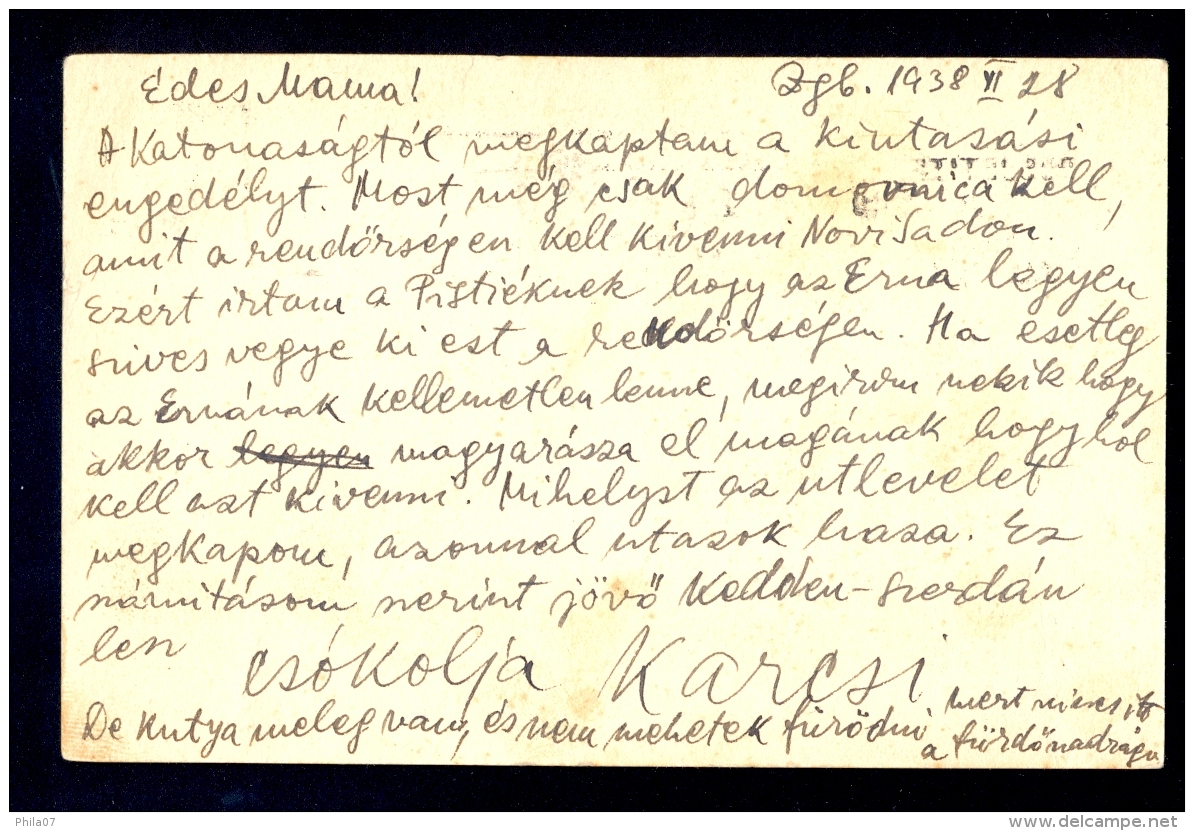 Édes Mama! Zgb. 1938 VI 28
A Katonaságtól megkaptam a kiutasási
engedélyt. Most még csak domovnica kell,
amit a rendőrségen kell kivenni Novisadon.
Ezért irtam a Pistiéknek hogy az Erna legyen
szives vegye ki est a rendőrségen. Ha esetleg
az Ernának kellemetlen lenne, megirom nekik hogy
akkor legyen magyarássa el magának hogy hol
kell azt kivenni. Mihelyst az utlevelet
megkapom, azonnal utazok haza. Ez
számitásom szerint jövő Kedden-szerdán
lesz
csókolja Karcsi
De kutya meleg van, és nem mehetek fürödni mert nincs itt
a fürdőnadrágom
Phila07
www.delcampe.net